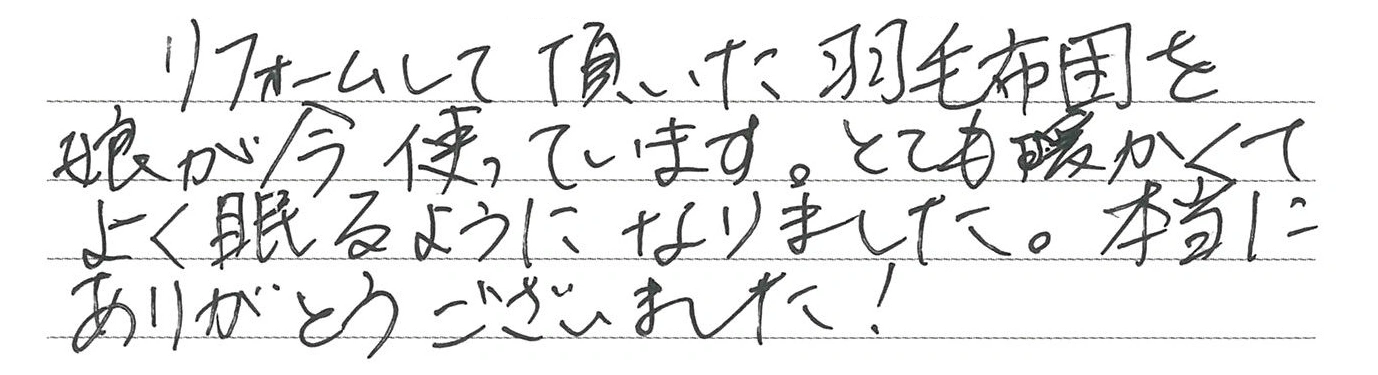 リフォームして頂いた羽毛布団を
娘が今使っています。とても暖かくて
よく眠るようになりました。本当に
ありがとうございました！